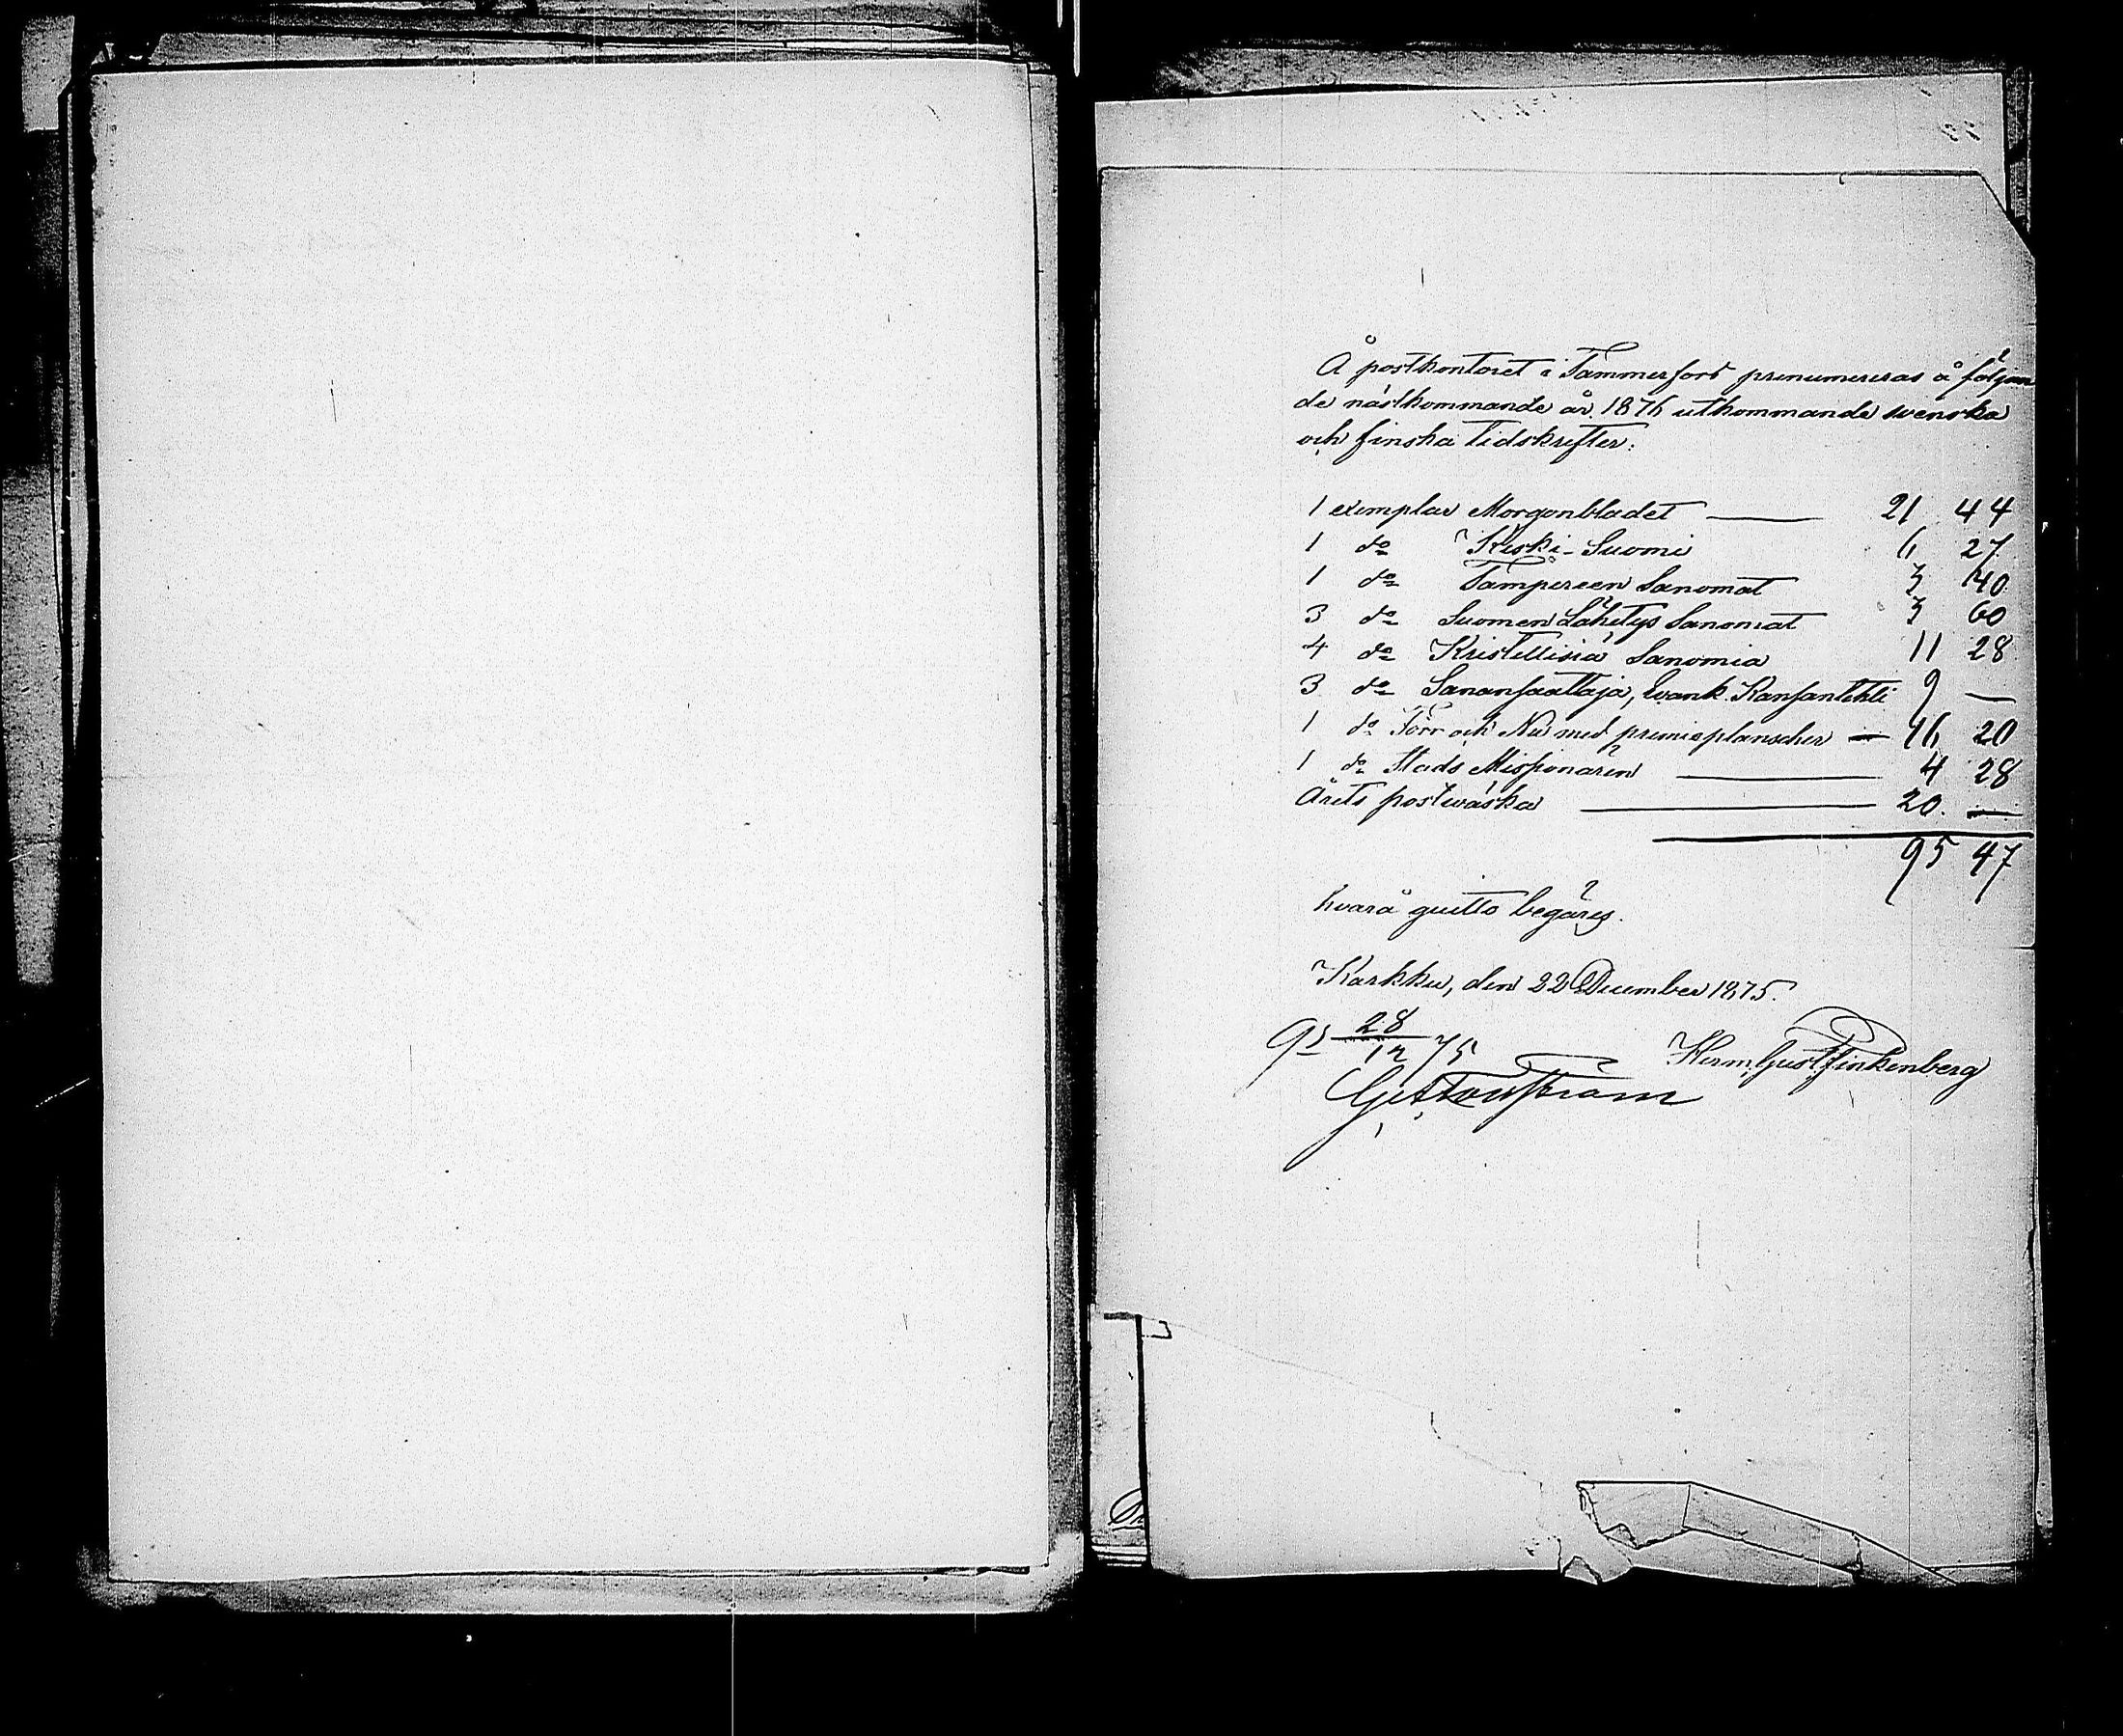 Å postkontoret i Tammerfors prenumereras å följan
de nästkommande år 1876 utkommande svenska
och finska tidskrifter:
1 exemplar Morgonbladet — 21 44
1 do Keski-Suomi 6 27
1 do Tampereen Sanomat 3 40
3 do Suomen Lähetys Sanomat 3 60
4 do Kristillisiä Sanomia 11 28
3 do Sanansaattaja, Evank. Kansanlehti 9 —
1 do Förr och Nu med premieplanscher — 16 20
1 do Stads Missionären — 4 28
Årets postväska — 20. —
95 47
hvarå quitto begäres.
Karkku, den 22 December 1875.
28
12 75
Herm. Gust. Finkenberg